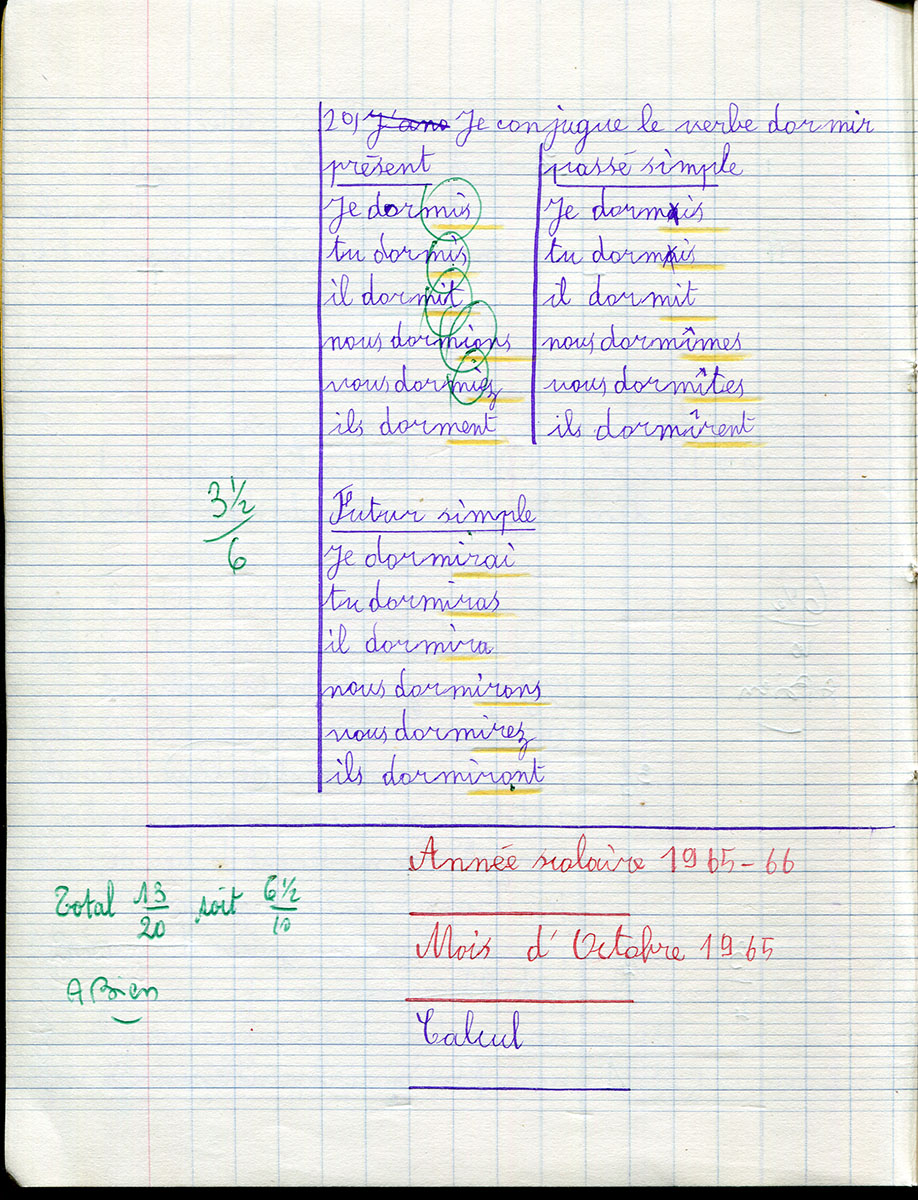 2°) J'ano Je conjugue le verbe dormir
présent
Je dormis
tu dormis
il dormit
nous dormions
vous dormiez
ils dorment
passé simple
Je dormis
tu dormis
il dormit
nous dormîmes
vous dormîtes
ils dormîrent
3 1/2
6
Futur simple
Je dormirai
tu dormiras
il dormira
nous dormirons
vous dormirez
ils dormiront
Année scolaire 1965-66
Total 13/20 soit 6 1/2/10
Mois d'Octobre 1965
A Bien
Calcul